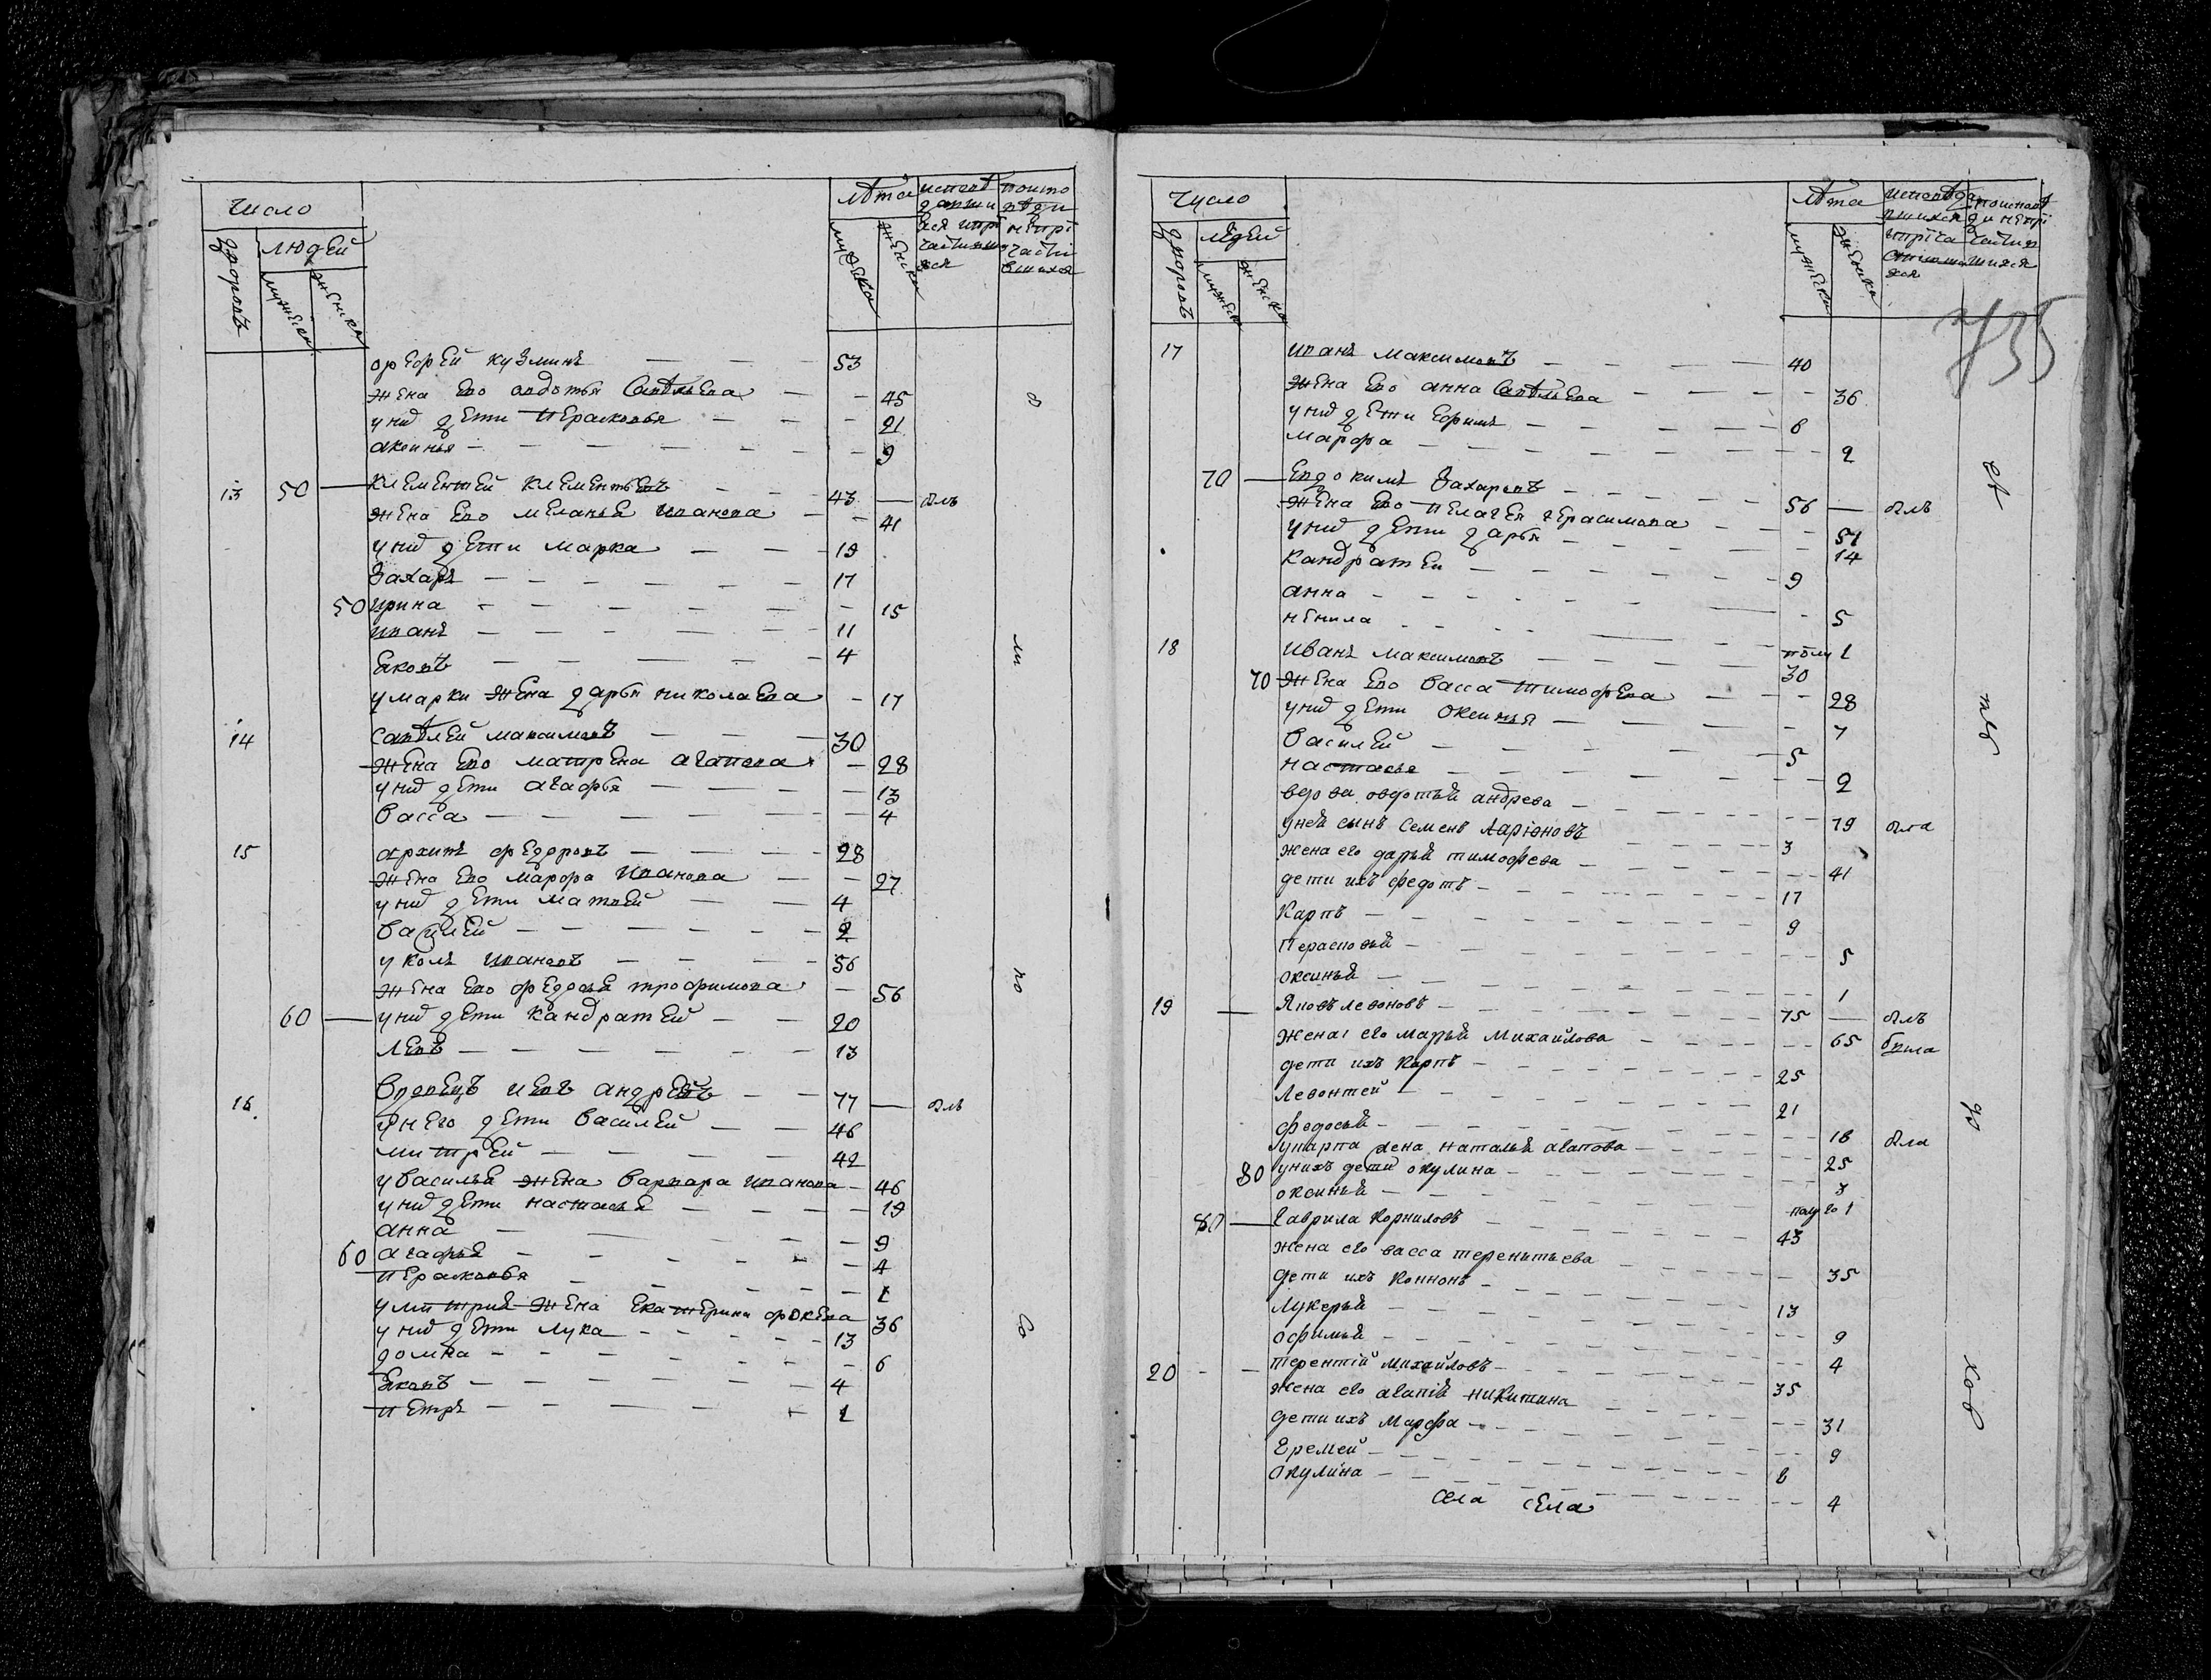 Число
дворовъ
людей
мужеска
женска
лѣта
мужеска
женска
исповѣ
давши
вѣди
непрі
части
вшихся
орефей кузминъ — — — 53
жена ево авдотья савѣльева — — 45
у них дети перасковья — — — 21
аксинья — — — — — — 9
13 50 — клементей клементьевъ — — 43 — былъ
жена ево меланья иванова — — 41
у них дети марка — — — 19
захаръ — — — — — — 17
50 ирина — — — — — — 15
иванъ — — — — — — 11
яковъ — — — — — — 4
у марки жена дарья николаева — 17
14 савѣлей максимовъ — — — 30
жена ево матрена агапова — 28
у них дети агафья — — — — 13
васса — — — — — — 4
15 архипъ федоровъ — — — — 28
жена ево марфа иванова — — 27
у них дети матвей — — 4
василей — — — — — — 2
иванова — — — — 56
жена ево федосья трофимова — 56
60 — у них дети кандратей — — 20
левъ — — — — — — 13
16 вдовецъ иевъ андреевъ — — 77 — былъ
у него дети василей — — 46
митрей — — — — — 42
у василья жена варвара иванова — 46
у них дети настасья — — — — 19
анна — — — — 9
60 агафья — — — — — 4
перасковья — — — — 1
у митрия жена екатерина фокена 36
у них дети лука — — — — 13
домна — — — — — — 6
яковъ — — — — — — 4
петръ — — — — — 1
в
ли
го
со
Число
дворовъ
людей
мужеска
женска
лѣта
мужеска
женска
735
17 иванъ максимовъ — — — — 40
жена ево анна савѣльева — — — 36
у них дети ефимъ — — — — 8
марфа — — — — — — 2
70 — евдокимъ захаровъ — — — — 56 — былъ
жена ево пелагея герасимова — — 51
у них дети дарья — — — — — 14
кандратеи — — — — — — 9
анна — — — — — — 5
ненила — — — — полу 1
18 иванъ максимовъ — — — — 30
70 жена ево васса тимофева — — — 28
у них дети оксинья — — — — 7
василей — — — — — — 5
настасья — — — — — — 2
вдова овдотья андрева — — — — 79 была
у ней сынъ семенъ ларіоновъ — — — — 3
жена его дарья тимофева — — — — 41
дети ихъ федотъ — — — — — 17
карпъ — — — — — — 9
перасковья — — — — — — 5
оксинья — — — — — — 1
19 — яковъ левоновъ — — — — 75 — былъ
жена его марья михайлова — — — — 65 была
дети ихъ карпъ — — — — — 25
левонтей — — — — — — 21
федосья — — — — — — 18 была
у карпа жена наталья агапова — — — — 25
80 у нихъ дети окулина — — — — — 3
оксинья — — — — — полу го 1
80 — гаврила корниловъ — — — — 43
жена его васса терентьева — — — — 35
дети ихъ коннонъ — — — — — 13
лукерья — — — — — — 9
офимья — — — — — — 4
20 — — терентій михайловъ — — — — 35
жена его агапія никитина — — — — 31
дети ихъ марфа — — — — — 9
еремей — — — — — — 8
окулина — — — — — — 4
села села
тве
ду
хов